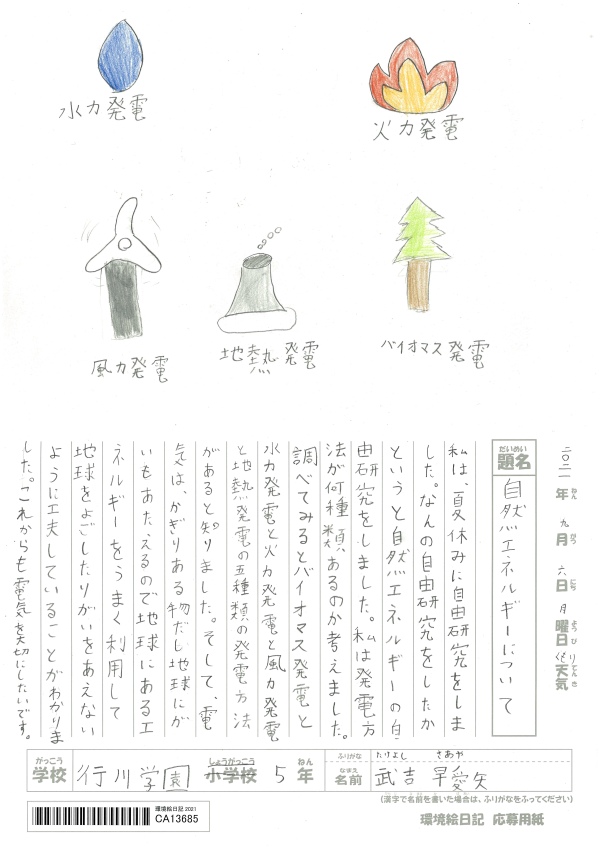 水力発電
火力発電
風力発電
地熱発電
バイオマス発電
二〇二一年ねん 九月がつ 六日にち 月曜日ようび くもり天気てんき
題名だいめい 自然エネルギーについて
私は、夏休みに自由研究をしま
した。なんの自由研究をしたか
というと自然エネルギーの自
由研究をしました。私は発電方
法が何種類あるのか考えました。
調べてみるとバイオマス発電と
水力発電と火力発電と風力発電
と地熱発電の五種類の発電方法
があると知りました。そして、電
気は、かぎりある物だし地球にが
いもあたえるので地球にあるエ
ネルギーをうまく利用して
地球をよごしたりがいをあえない
ように工夫していることがわかりま
した。これからも電気を大切にしたいです。
学校がっこう 行川学園 小学校しょうがっこう 5年ねん
ふりがな たけよし さあや
名前なまえ 武吉 早愛矢
(漢字で名前を書いた場合は、ふりがなをふってください)
環境絵日記 2021
CA13685
環境絵日記 応募用紙